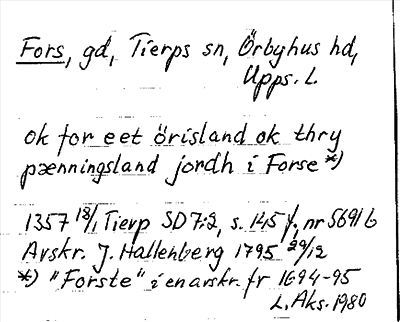 Fors, gd, Tierps sn, Örbyhus hd,
Upps. L.
ok for eet örisland ok thry
pænningsland jordh i Forse *)
1357 18/1 Tierp SD 7:2, s. 145 f, nr 5691 b
Avskr. J. Hallenberg 1795 29/12
*) "Forste" i en avskr. fr 1694-95
L. Aks. 1980